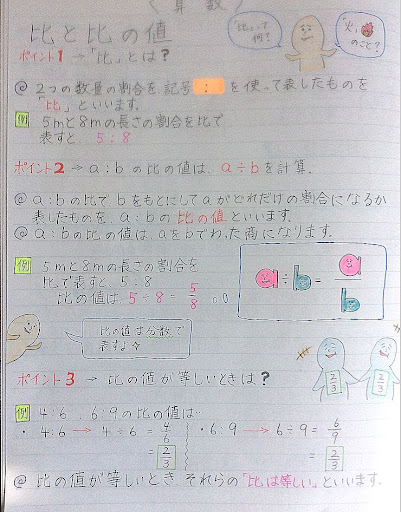 〈算数〉
比と比の値
「比」って何？
"火"のこと？
ポイント1 → 「比」とは？
@ 2つの数量の割合を記号 : を使って表したものを
「比」といいます。
例 5mと8mの長さの割合を比で
表すと 5:8
ポイント2 → a:bの比の値は、a÷bを計算.
@ a:bの比で bをもとにして aがどれだけの割合になるか
表したものを a:bの比の値といいます。
@ a:bの比の値は aをbでわった商になります。
例 5mと8mの長さの割合を
比で表すと、5:8
比の値は 5÷8 = 5/8
a÷b = a/b
比の値は分数で
表すよ☆
2/3
2/3
ポイント3 → 比の値が等しいときは？
例 4:6、6:9の比の値は…
・4:6 → 4÷6 = 4/6
= 2/3
・6:9 → 6÷9 = 6/9
= 2/3
@ 比の値が等しいとき それらの「比は等しい」といいます.